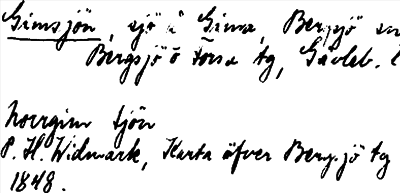 Gimsjön, sjö i Gimma, Bergsjö sn
Bergsjö o Forsa tg, Gävleb. l
Norrgimm sjön
P. H. Widmark, Karta öfver Bergsjö tg
1848.